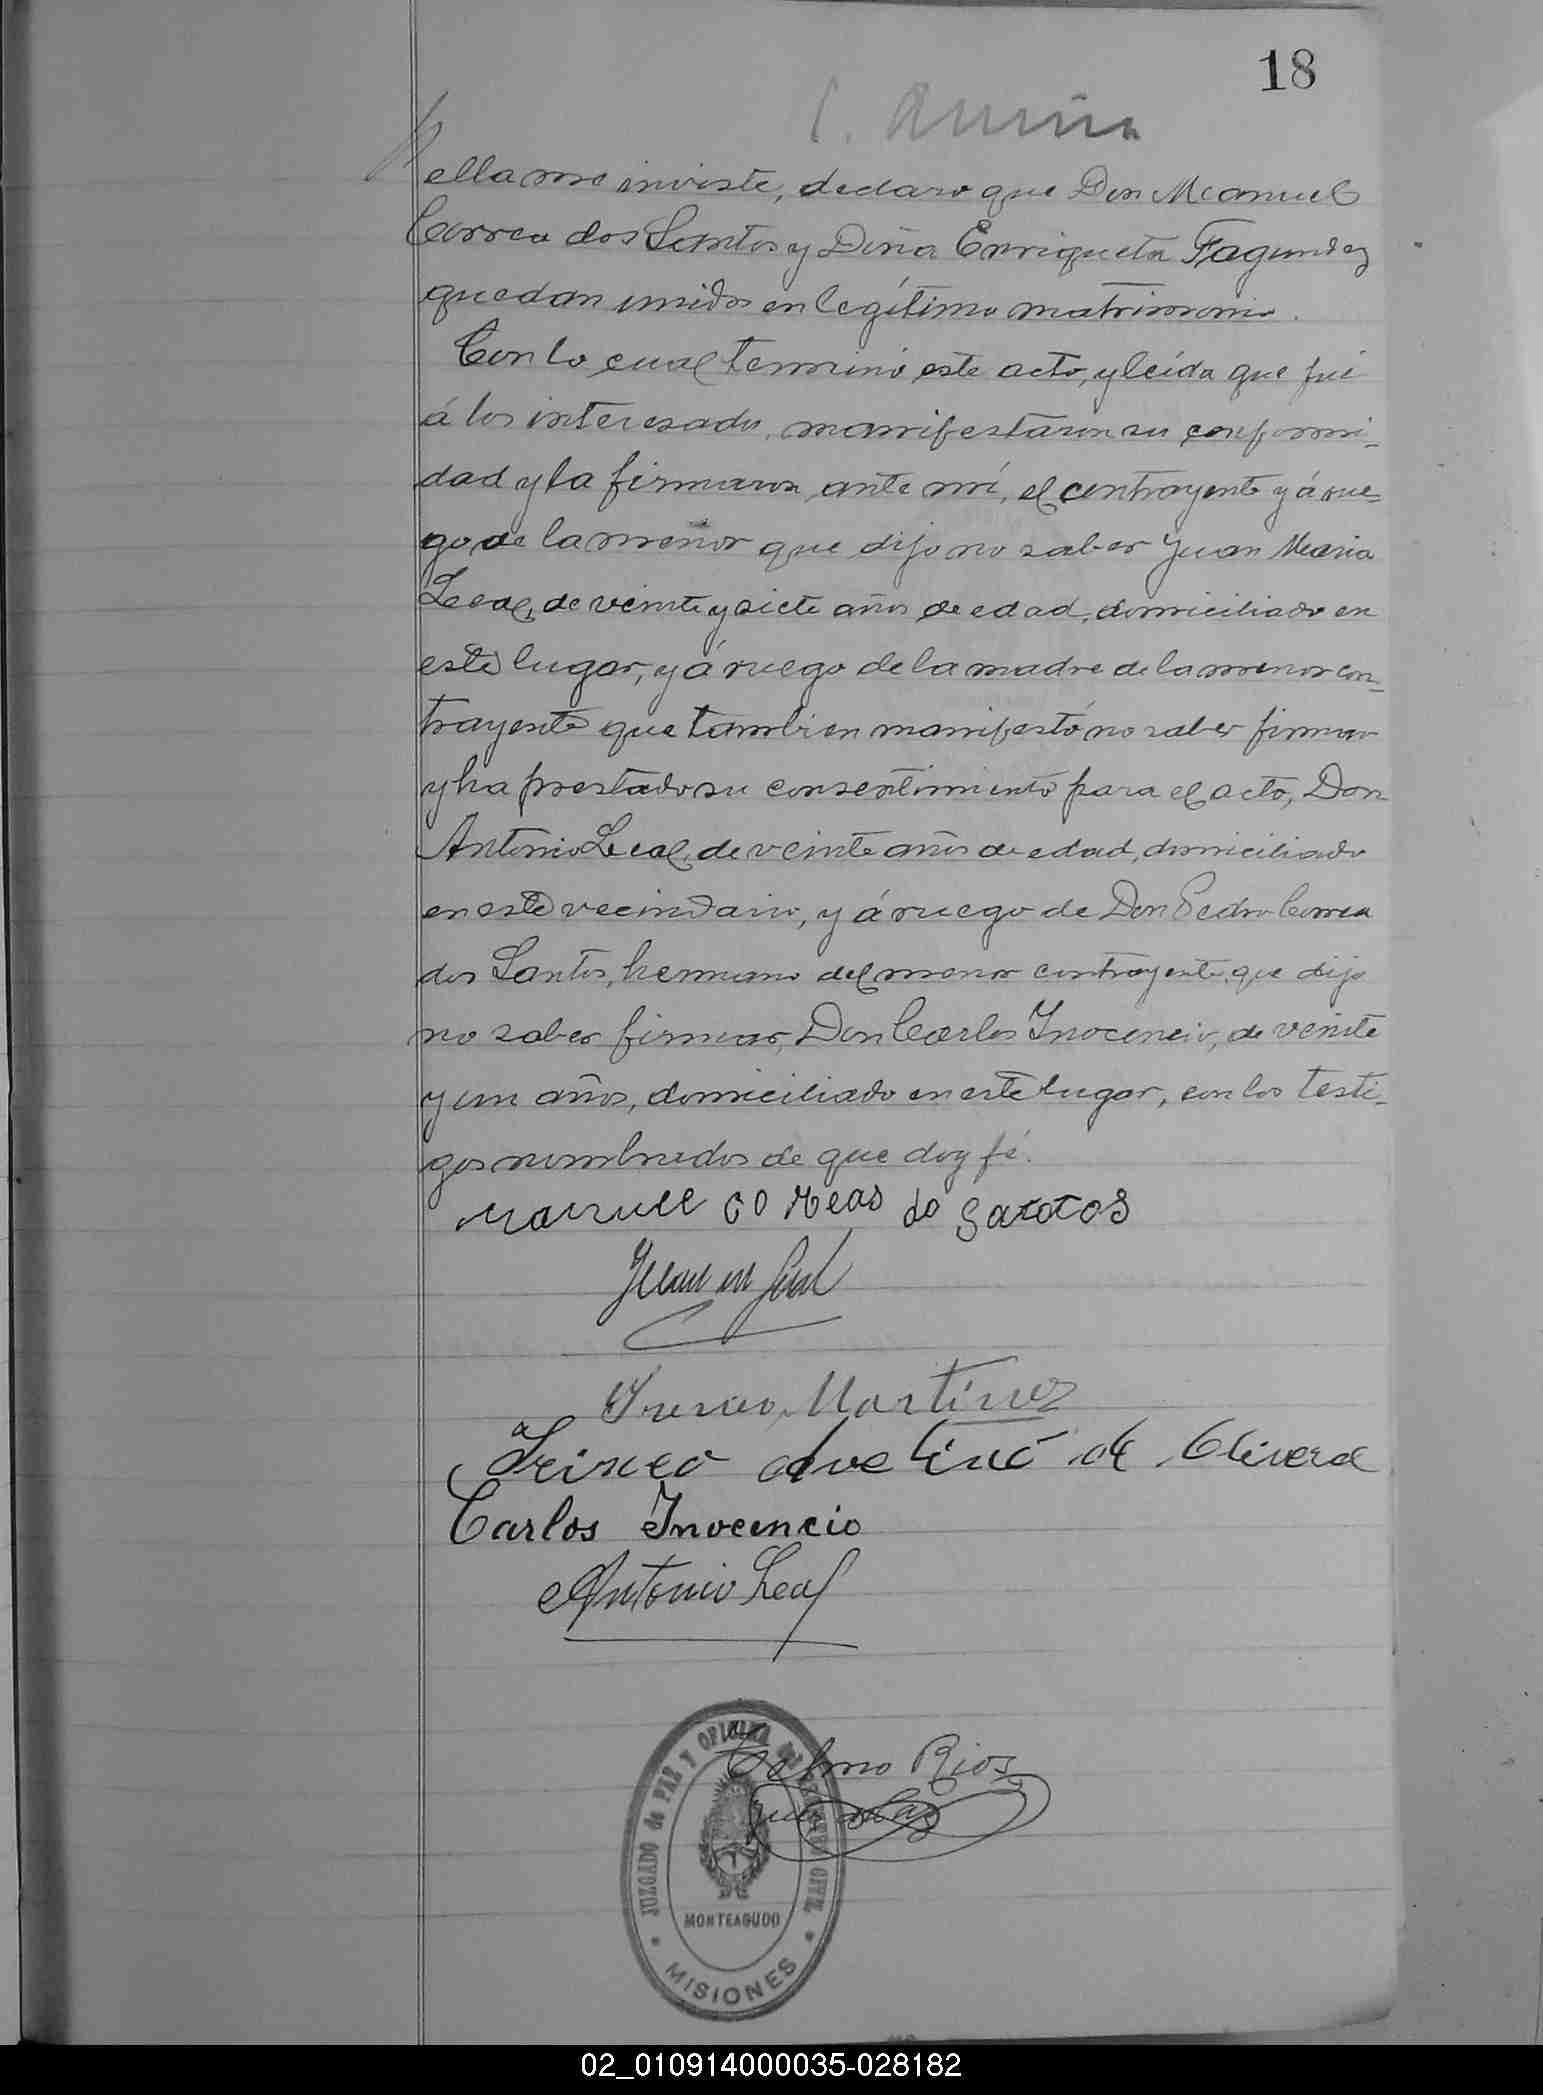 18
ella me inviste, declaro que Don Manuel
Correa dos Santos y Doña Enriqueta Fagundez
quedan unidos en legítimo matrimonio.
Con lo cual terminó este acto, y leída que fué
á los interesados, manifestaron su conformi-
dad y la firmaron, ante mí, el contrayente y á rue-
go de la menor que dijo no saber Juan Maria
Leal, de veinte y siete años de edad, domiciliado en
este lugar, y á ruego de la madre de la menor con-
trayente que tambien manifestó no saber firmar
y ha prestado su consentimiento para el acto, Don
Antonio Leal, de veinte años de edad, domiciliado
en este vecindario, y á ruego de Don Pedro Correa
dos Santos, hermano del menor contrayente, que dijo
no saber firmar, Don Carlos Inocencio, de veinte
y un años, domiciliado en este lugar, con los testi-
gos nombrados de que doy fé.
Manuel Coreas do Santos
Juan M Leal
Ireneo Martinez
Irineo de Olivera
Carlos Inocencio
Antonio Leal
Telmo Rios
Juez de Paz
JUZGADO de PAZ Y OFICINA del REGISTRO CIVIL
MONTEAGUDO
MISIONES
02_010914000035-028182